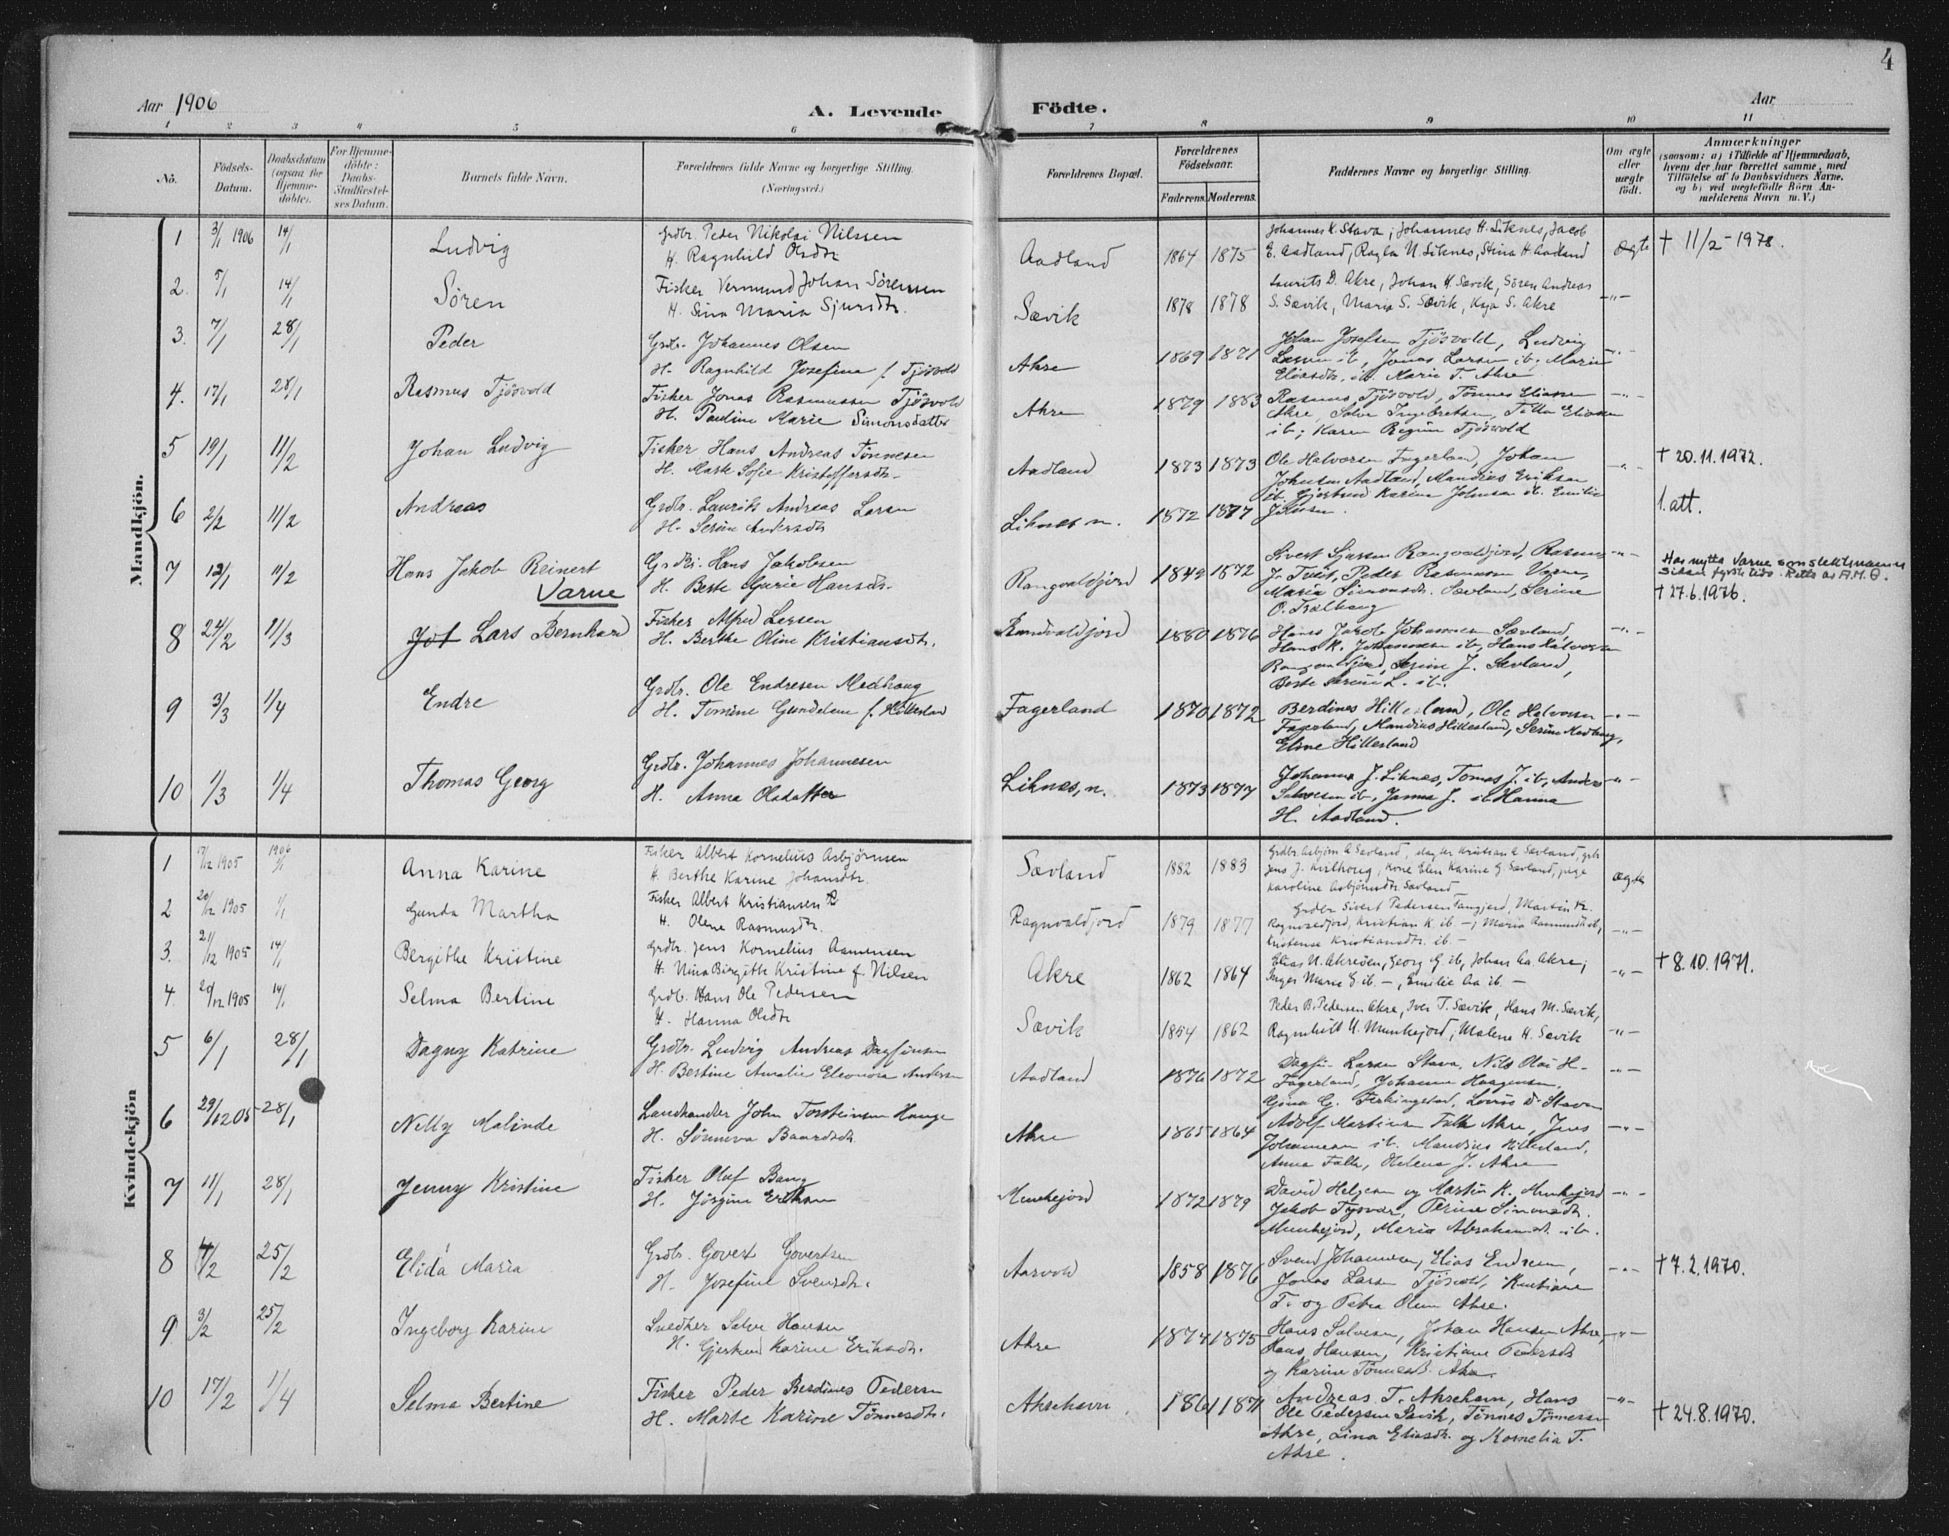 4
Aar 1906
A. Levende
Födte.
Aar
1 2 3 4 5 6 7 8 9 10 11
No.
Födsels-
Datum.
Daabsdatum
(ogsaa for
Hjemme-
döbte).
For Hjemme-
döbte:
Daabs-
Stadfæstel-
ses Datum.
Barnets fulde Navn.
Forældrenes fulde Navne og borgerlige Stilling.
(Næringsvei.)
Forældrenes Bopæl.
Forældrenes
Födselsaar.
Faderens. Moderens.
Faddernes Navne og borgerlige Stilling.
Om ægte
eller
uægte
födt.
Anmærkninger
(saasom: a) i Tilfælde af Hjemmedaab,
hvem der har forrettet samme, med
Tilföielse af to Daabsvidners Navne.
og b) ved uægtefödte Börn An-
melderens Navn m. V.)
Mandkjön.
1 3/1 1906 14/1 Ludvig
Grdbr. Peder Nikolai Nilssen
H. Ragnhild Olsdtr
Aadland 1864 1875
Johannes K. Stava, Johannes H. Liknes, Jacob
E. Aadland, Ragla N. Liknes, Stina H. Aadland
Ægte † 11/2 - 1978.
2. 5/1 14/1 Søren
Fisker Vermund Johan Sørensen
H. Sina Maria Sjursdtr.
Sævik 1878 1878
Laurits D. Akre, Johan H. Sævik, Søren Andreas
S. Sævik, Maria S. Sævik, Kaja S. Akre
-"-
3. 7/1 28/1 Peder
Grdbr. Johannes Olsen
H. Ragnhild Josefina f. Tjøsvold
Akre 1869 1871
Johan Josefsen Tjösvold, Ludvig
Larsen ib, Jonas Larsen ib, Marie
Eliasdtr. ib. Marie T. Akre
-"-
4. 17/1 28/1 Rasmus Tjösvold
Fisker Jonas Rasmussen Tjösvold
H. Pauline Marie Simonsdatter
Akre 1879 1883
Rasmus Tjösvold, Tönnes Eliassen
Akre, Salve Ingebretsen, Eliassen
ib, Karen Regine Tjösvold
-"-
5 19/1 11/2 Johan Ludvig
Fisker Hans Andreas Tönnesen
H. Marte Sofie Kristoffersdtr.
Aadland 1873 1873
Ole Halvorsen Fagerland, Johan
Johnsen Aadland, Mandius Eriksen
ib. Gjertrud Karine Johnsen ib. Emilie
Johnsen.
-"- † 20.11.1972.
6 2/2 11/2 Andreas
Grdbr. Laurits Andreas Larsen
H. Serine Andersdtr
Liknes n. 1872 1877
1. att.
7 12/1 11/2 Hans Jakob Reinert
Varne
Grdbr. Hans Jakobsen
H. Berte Gurie Hansdtr.
Rangvaldjord 1849 1872
Sivert Rangvaldjord, Rasmus
J. Peder Rasmussen
Maria Simonsdtr. Sævland, Serine
O.
-"-
Har nytta Varne som slektsnamn
sidan
† 27.6.1976.
8 24/2 11/3 Lars Bernhard
Fisker Alfred Larsen
H. Berthe Oline Kristiansdtr.
Randvaldjord 1880 1876
Hans Jacob Johannesen Sævland,
Hans R. Johannesen ib, Hans Halvorsen
Rangvaldjord, Serine J. Sævland,
Berte Serine L. ib.
-"-
9 3/3 1/4 Endre
Grdbr. Ole Endresen Medhaug
H. Tomine Gundelene f. Hillesland
Fagerland 1870 1872
Berdines Hillesland, Ole Halvorsen
Fagerland, Mandius Hillesland, Serine Medhaug,
Eline Hillesland
-"-
10 1/3 1/4 Thomas Georg
Grdbr. Johannes Johannesen
H. Anna Olsdatter
Liknes, n. 1873 1877
Johannes J. Liknes, Tomas J. ib, Anders
Salvesen ib, Janna J. ib Hanna
H. Aadland.
-"-
Kvindekjön
1 17/12 1905 1906 1/1 Anna Karine
Fisker Albert Kornelius Asbjørnsen
H. Berthe Karine Johansdtr.
Sævland 1882 1883
Grdbr. Asbjørn A Sævland, Kristian E Sævland, grb
Jens J. Kvilhaug, Kone Elen Karine G. Sævland, pige
Karoline Asbjørnsdtr Sævland
Ægte
2 20/12 1905 1/1 Gunda Martha
Fisker Albert Kristiansen R
H. Olene Rasmusdtr.
Ragnvaldjord 1879 1877
Grdbr Sivert Pedersen Tangjerd, Martin K.
Ragnvaldjord, Kristian K. ib -, Maria Aamundsdtr ib,
Kristense Kristiansdtr. ib. -
-"-
3. 21/12 1905 14/1 Bergithe Kristine
Grdbr. Jens Kornelius Aamunsen
H. Nina Birgithe Kristine f. Nilsen
Akre 1862 1864
Elias N. Akreøen, Georg G. ib, Johan Aa Akre,
Inger Marie E ib. -, Emilie Aa ib. -
-"- † 8.10.1971.
4. 20/12 1905 14/1 Selma Bertine
Grdb. Hans Ole Pedersen
H. Hanna Olsdtr
Sævik 1854 1862
Peder B. Pedersen Akre, Iver T. Sævik, Hans M. Sævik,
Ragnhild H. Munkejord, Malene H. Sævik
-"-
5 6/1 28/1 Dagny Katrine
Grdbr. Ludvig Andreas Dagfinsen
H. Bertine Amalie Eleonora Andersen
Aadland 1876 1872
Larsen Stava, Nils Olai H.
Fagerland, Johanna Haagensen,
Gina G. Ferkingstad, Lovise D. Stava
-"-
6 29/12 05 28/1 Nelly Malinde
Landhandler John Torsteinsen Hauge
H. Sönneva Baardsdtr.
Akre 1865 1864
Adolf Martinsen Falk Akre, Jens
Johannesen ib. Mandius Hillesland,
Anna Falk, Helena J. Akre
-"-
7 11/1 28/1 Jenny Kristine
Fisker Oluf Bang
H. Jörgine Eriksen
Munkejord 1872 1879
David Helgesen og Martin K. Munkejord
Jakob Tysvær, Simonsdtr.
Munkejord, Maria Abrahamsdtr ib.
-"-
8 4/2 25/2 Elida Maria
Grdbr. Govert Govertsen
H. Josefine Svensdtr.
Aarvold 1858 1876
Svend Johannesen, Elias Endresen,
Jonas Larsen Tjösvold, Kristiane
T. og Petra Olsen Akre.
-"- † 7.2.1970.
9 3/2 25/2 Ingeborg Karine
Snedker Salve Hansen
H. Gjertrud Karine Eriksdtr.
Akre 1874 1875
Hans Salvesen, Johan Hansen Akre,
Hans Hansen, Kristiane Pedersdtr
og Karine Tönnesdtr. Akre.
-"-
10 17/2 1/4 Selma Bertine
Fisker Peder Berdines Pedersen
H. Marte Karine Tönnesdtr.
Akrehavn. 1871
Andreas T. Akrehavn, Hans
Ole Pedersen Sævik, Tönnes Tönnesen
Akre, Lina Eliasdtr. og Kornelia T.
Akre.
-"- † 24.8.1970.